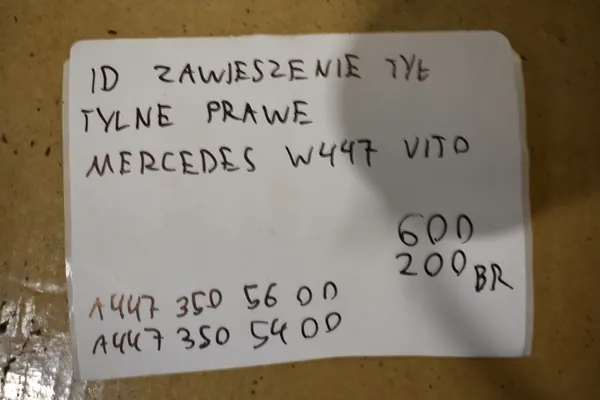 ID ZAWIESZENIE TYŁ
TYLNE PRAWE
MERCEDES W447 VITO
600
200 BR
A447 350 56 00
A447 350 54 00